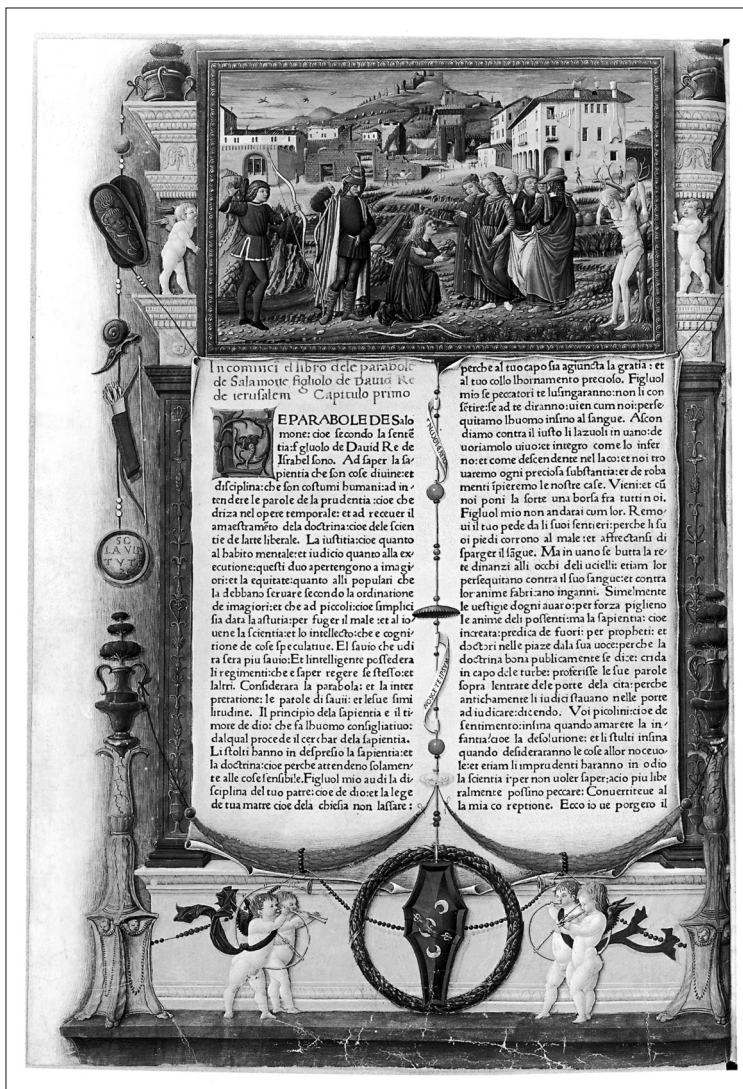 Incominci el libro dele parabole
de Salamone figliolo de Dauid Re
de ierusalem Capitulo primo
E PARABOLE DE Salo
mone: cioe secondo la sentẽ
tia: fgluolo de Dauid Re de
Israhel sono. Ad saper la sa-
pientia che son cose diuine: et
disciplina: che son costumi humani: ad in-
tendere le parole de la prudentia: cioe che
driza nel opere temporale: et ad receuer il
amaestramẽto dela doctrina: cioe dele scien
tie de larte liberale. La iustitia: cioe quanto
al habito mentale: et iudicio quanto alla ex-
ecutione: questi duo apertengono a imagi-
ori: et la equitate: quanto alli populari che
la debbano seruare secondo la ordinatione
de imagiori: et che ad piccoli: cioe simplici
sia data la astutia: per fuger il male: et al io-
uene la scientia: et lo intellecto: che e cogni
tione de cose speculatiue. El sauio che udi
ra sera piu sauio: Et lintelligente possedera
li regimenti: che e saper regere se stesso: et
laltri. Considerara la parabola: et la inter
pretatione: le parole di sauii: et lesue simi
litudine. Il principio dela sapientia e il ti-
more de dio: che fa lhuomo consigliatiuo:
dalqual procede il cerchar dela sapientia.
Li stolti hanno in despresio la sapientia: et
la doctrina: cioe perche attendeno solamen-
te alle cose sensibile. Figluol mio audi la di
sciplina del tuo patre: cioe de dio: et la lege
de tua matre cioe dela chiesia non lassare:
perche al tuo capo sia agiuncta la gratia: et
al tuo collo lhornamento precioso. Figluol
mio se peccatori te lusingaranno: non li con
sẽtire: se ad te diranno: uien cum noi: perse-
quitamo lhuomo insino al sangue. Ascon
diamo contra il iusto li lazuoli in uano: de
uoriamolo uiuo: et integro come lo infer
no: et come descendente nel laco: et noi tro
uaremo ogni preciosa substantia: et de roba
menti spieremo le nostre case. Vieni: et cũ
noi poni la sorte una borsa fra tutti noi.
Figluol mio non andarai cum lor. Remo-
ui il tuo pede da li suoi sentieri: perche li su
oi piedi corrono al male: et affrectansi di
sparger il sãgue. Ma in uano se butta la re-
te dinanzi alli occhi deli ucielli: etiam lor
persequitano contra il suo sangue: et contra
lor anime fabricano inganni. Simelmente
le uestigie dogni auaro: per forza piglieno
le anime deli possenti: ma la sapientia: cioe
increata: predica de fuori: per propheti: et
doctori nelle piaze dala sua uoce: perche la
doctrina bona publicamente se dice: crida
in capo dele turbe: proferisse le sue parole
sopra lentrate dele porte dela cita: perche
antichamente li iudici stauano nelle porte
ad iudicare: dicendo. Voi picolini: cioe de
sentimento: insina quando amarete la in-
fantia: cioe la desolutione: et li stulti insina
quando desideraranno le cose allor noceuo
le: et etiam li imprudenti haranno in odio
la scientia: per non uoler saper: acio piu libe
ralmente possino peccare: Conuertiteue al
la mia co reptione. Ecco io ue porgero il
SO
LA VIR
TVT